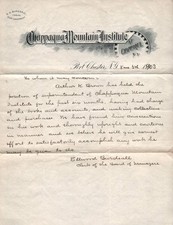 Chappaqua Mountain Institute
Port Chester, N.Y. 1903
To whom it may concern:
Arthur H. has held the
position of superintendent of Chappaqua Mountain
Institute for the past six months, having had charge
of the books and accounts, and making collections
and purchases. We have found him conscientious
in his work and thoroughly upright and
in manner and we believe he will give every
effort to satisfactorily accomplish any work he
may be given to do.
Ellwood Burdsall
Clerk of the Board of Managers